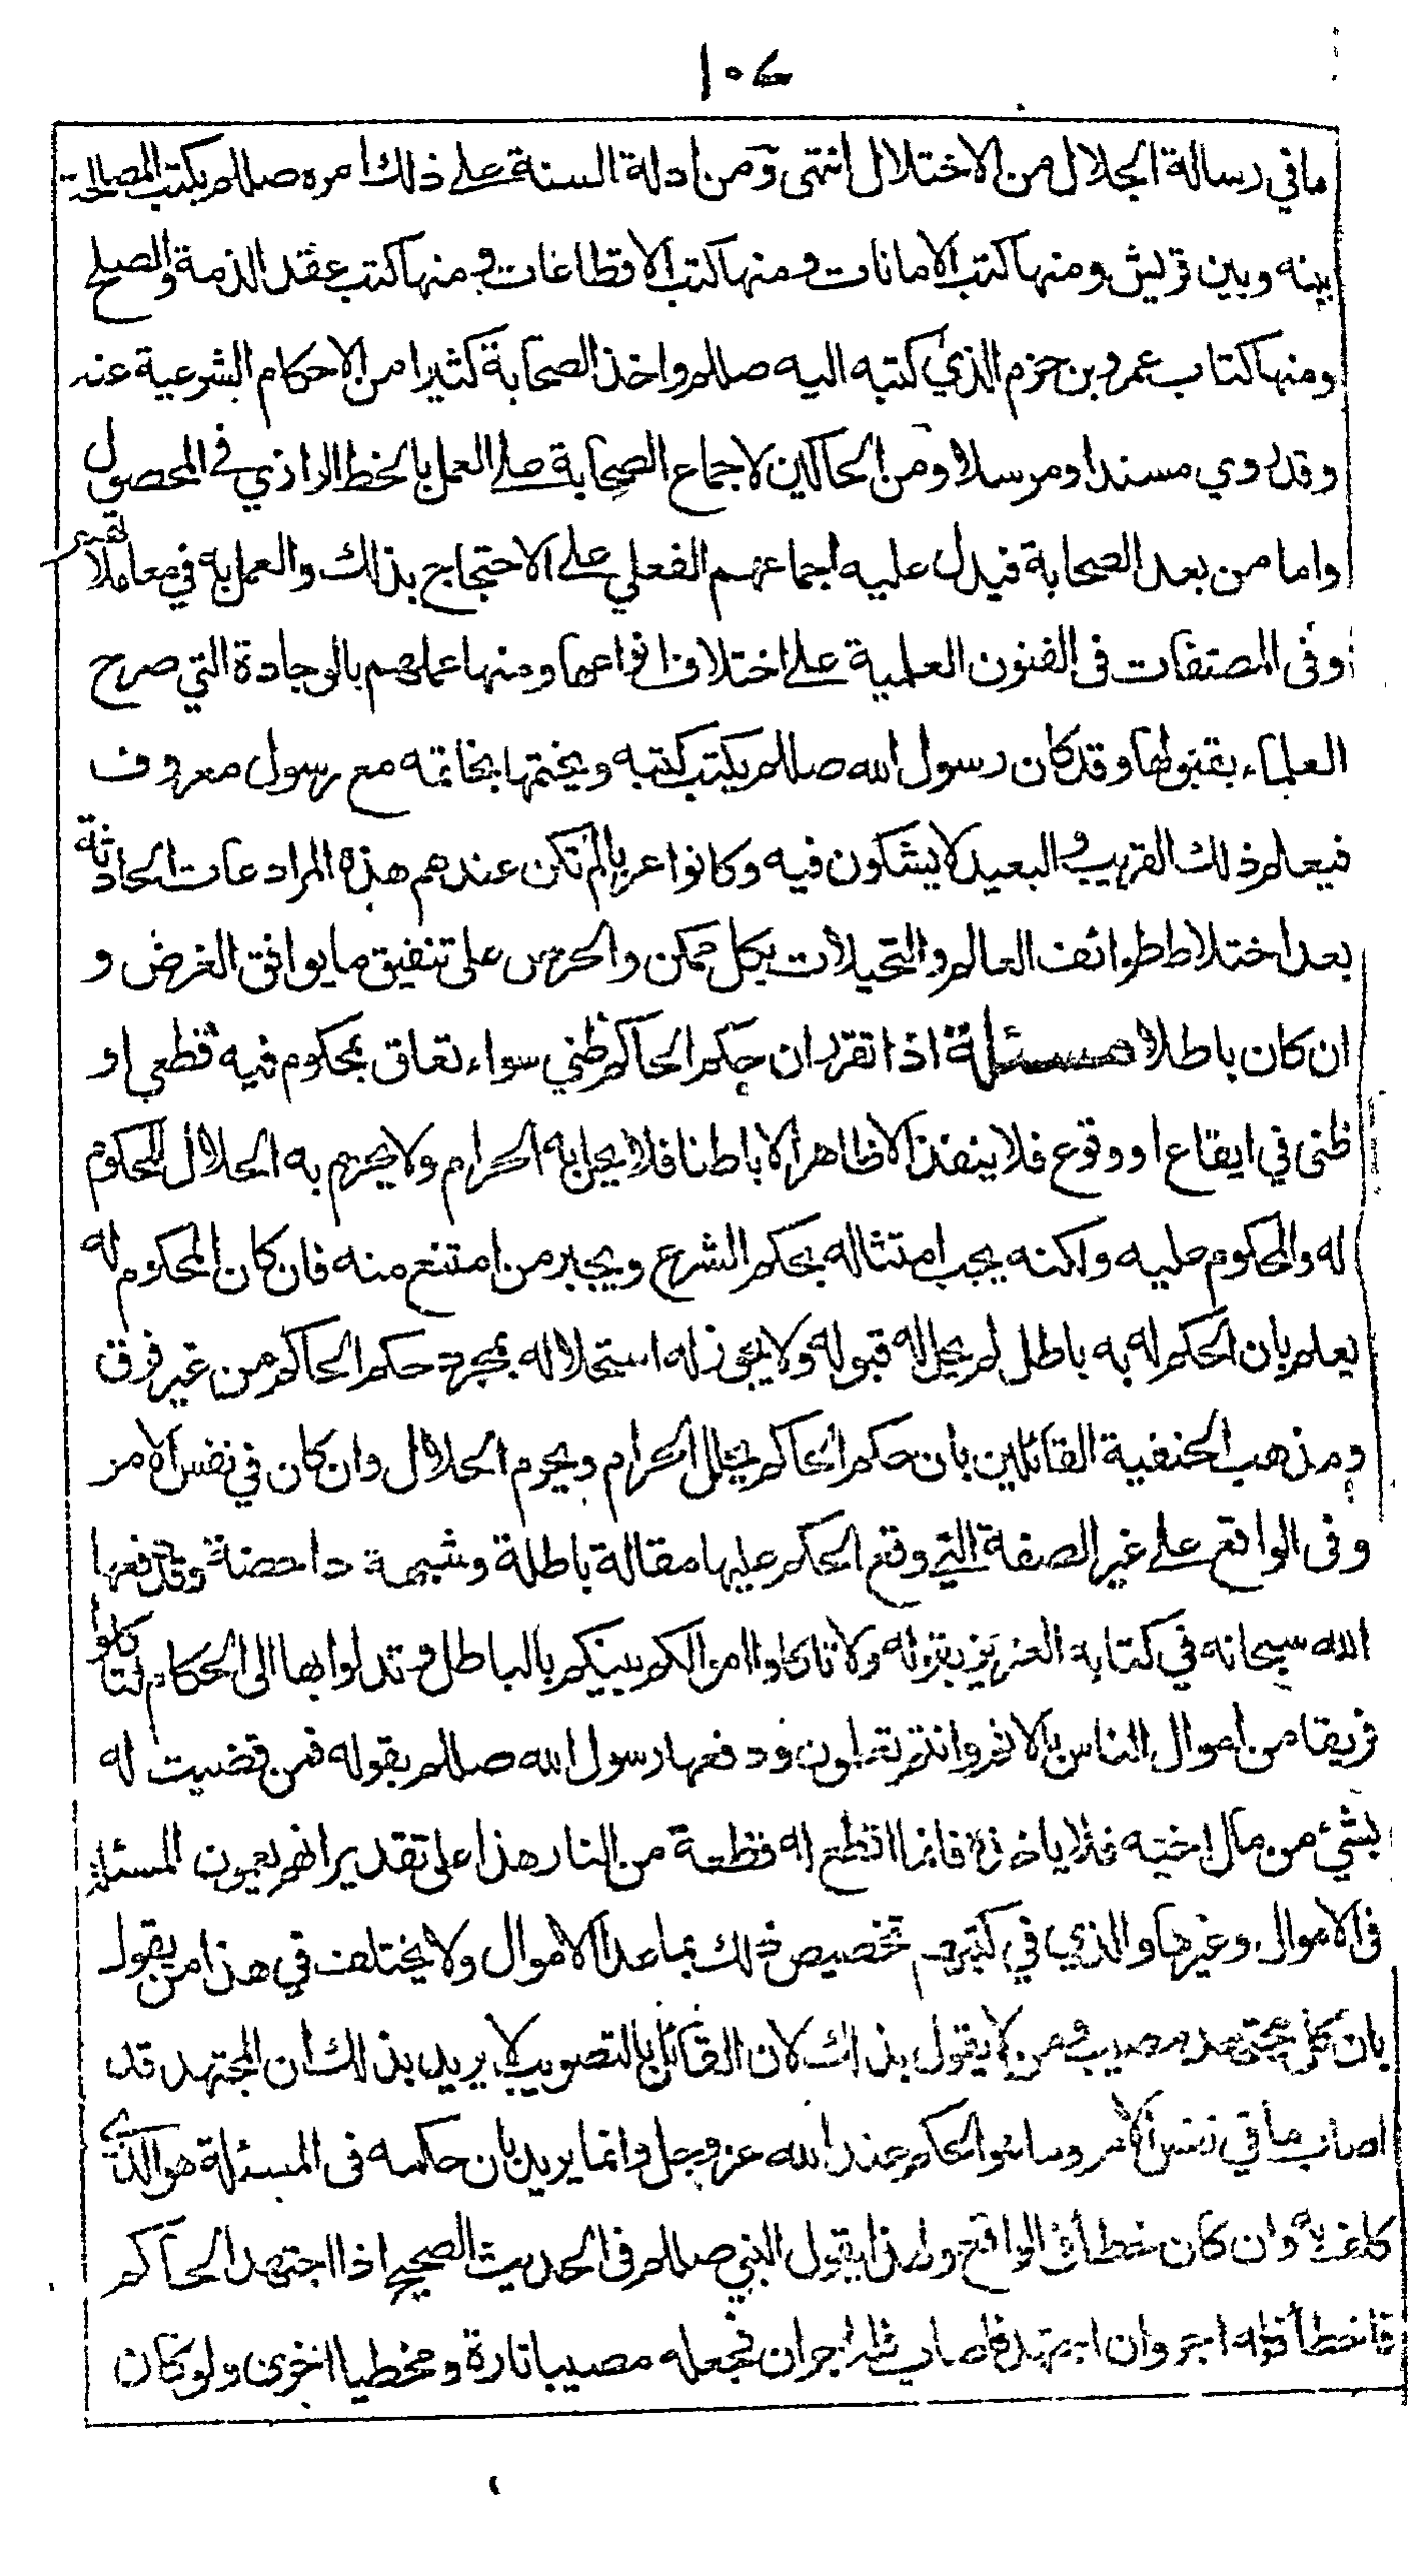 ١٠٦
ما في رسالة الجلال من الاختلال انتهى ومن ادلة السنة على ذلك امره صللم بكتب المصالحة
بينه وبين قريش ومنها كتب الامانات ومنها كتب الاقطاعات ومنها كتب عقد الذمة والصلح
ومنها كتاب عمرو بن حزم الذي كتبه اليه صللم واخذ الصحابة كثيرا من الاحكام الشرعية عنه
وقد روي مسندا ومرسلا ومن الحاكين لاجماع الصحابة على العمل بالخط الرازي في المحصول
واما من بعد الصحابة فيدل عليه اجماعهم الفعلي على الاحتجاج بذلك والعمل به في معاملاتهم
وفى المصنفات فى الفنون العلمية على اختلاف انواعها ومنها عملهم بالوجادة التي صرح
العلماء بقبولها وقد كان رسول الله صللم يكتب كتبه ويختمها بخاتمه مع رسول معروف
فيعلم ذلك القريب والبعيد لا يشكون فيه وكانوا عربا لم تكن عندهم هذه المرادعات الحادثة
بعد اختلاط طوائف العالم والتحيلات بكل ممكن والحرص على تنفيق ما يوافق الغرض و
ان كان باطلا مسئلة اذا تقرر ان حكم الحاكم ظني سواء تعلق بمحكوم فيه قطعي او
ظنى في ايقاع او وقوع فلا ينفذ الا ظاهرا لا باطنا فلا يحل به الحرام ولا يحرم به الحلال للمحكوم
له والمحكوم عليه ولكنه يجب امتثاله بحكم الشرع ويجبر من امتنع منه فان كان المحكوم له
يعلم بان الحكم له به باطل لم يحل له قبوله ولا يجوز له استحلاله بمجرد حكم الحاكم من غير فرق
ومذهب الحنفية القائلين بان حكم الحاكم يحلل الحرام ويحرم الحلال وان كان في نفس الامر
وفى الواقع على غير الصفة التي وقع الحكم عليها مقالة باطلة وشبهة داحضة وقد دفعها
الله سبحانه في كتابه العزيز بقوله ولا تاكلوا اموالكم بينكم بالباطل وتدلوا بها الى الحكام لتاكلوا
فريقا من اموال الناس بالاثم وانتم تعلمون ودفعها رسول الله صللم بقوله فمن قضيت له
بشيء من مال اخيه فلا ياخذه فانما اقطع له قطعة من النار هذا على تقدير انهم يعمون المسئلة
فى الاموال وغيرها والذي في كتبهم تخصيص ذلك بما عدا الاموال ولا يختلف في هذا من يقول
بان كل مجتهد مصيب ومن لا يقول بذلك لان القائل بالتصويب لا يريد بذلك ان المجتهد قد
اصاب ما في نفس الامر وما هو الحكم عند الله عز وجل وانما يريد بان حكمه فى المسئلة هو الذي
كلف به وان كان خطأ في الواقع ولهذا يقول النبي صللم فى الحديث الصحيح اذا اجتهد الحاكم
فاخطأ فله اجر وان اجتهد فاصاب فله اجران فجعله مصيبا تارة ومخطيا اخرى ولو كان